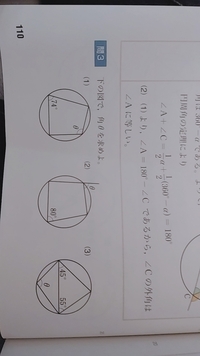 円周角の定理により
∠A + ∠C = 1/2 a + 1/2 (360° − a) = 180°
(2) (1)より，∠A = 180° − ∠C であるから，∠C の外角は
∠A に等しい。
C
問3 下の図で，角 θ を求めよ。
(1) (2) (3)
74°
θ
80°
θ
45°
55°
θ
110